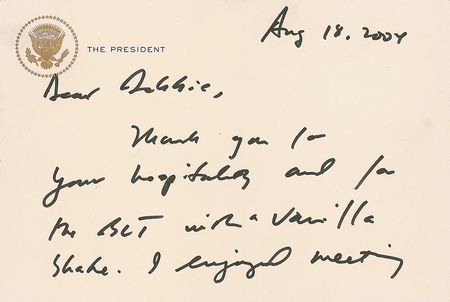 THE PRESIDENT
Aug 18, 2004
Dear Debbie,
Thank you for
your hospitality and for
the BLT with a vanilla
shake. I enjoyed meeting